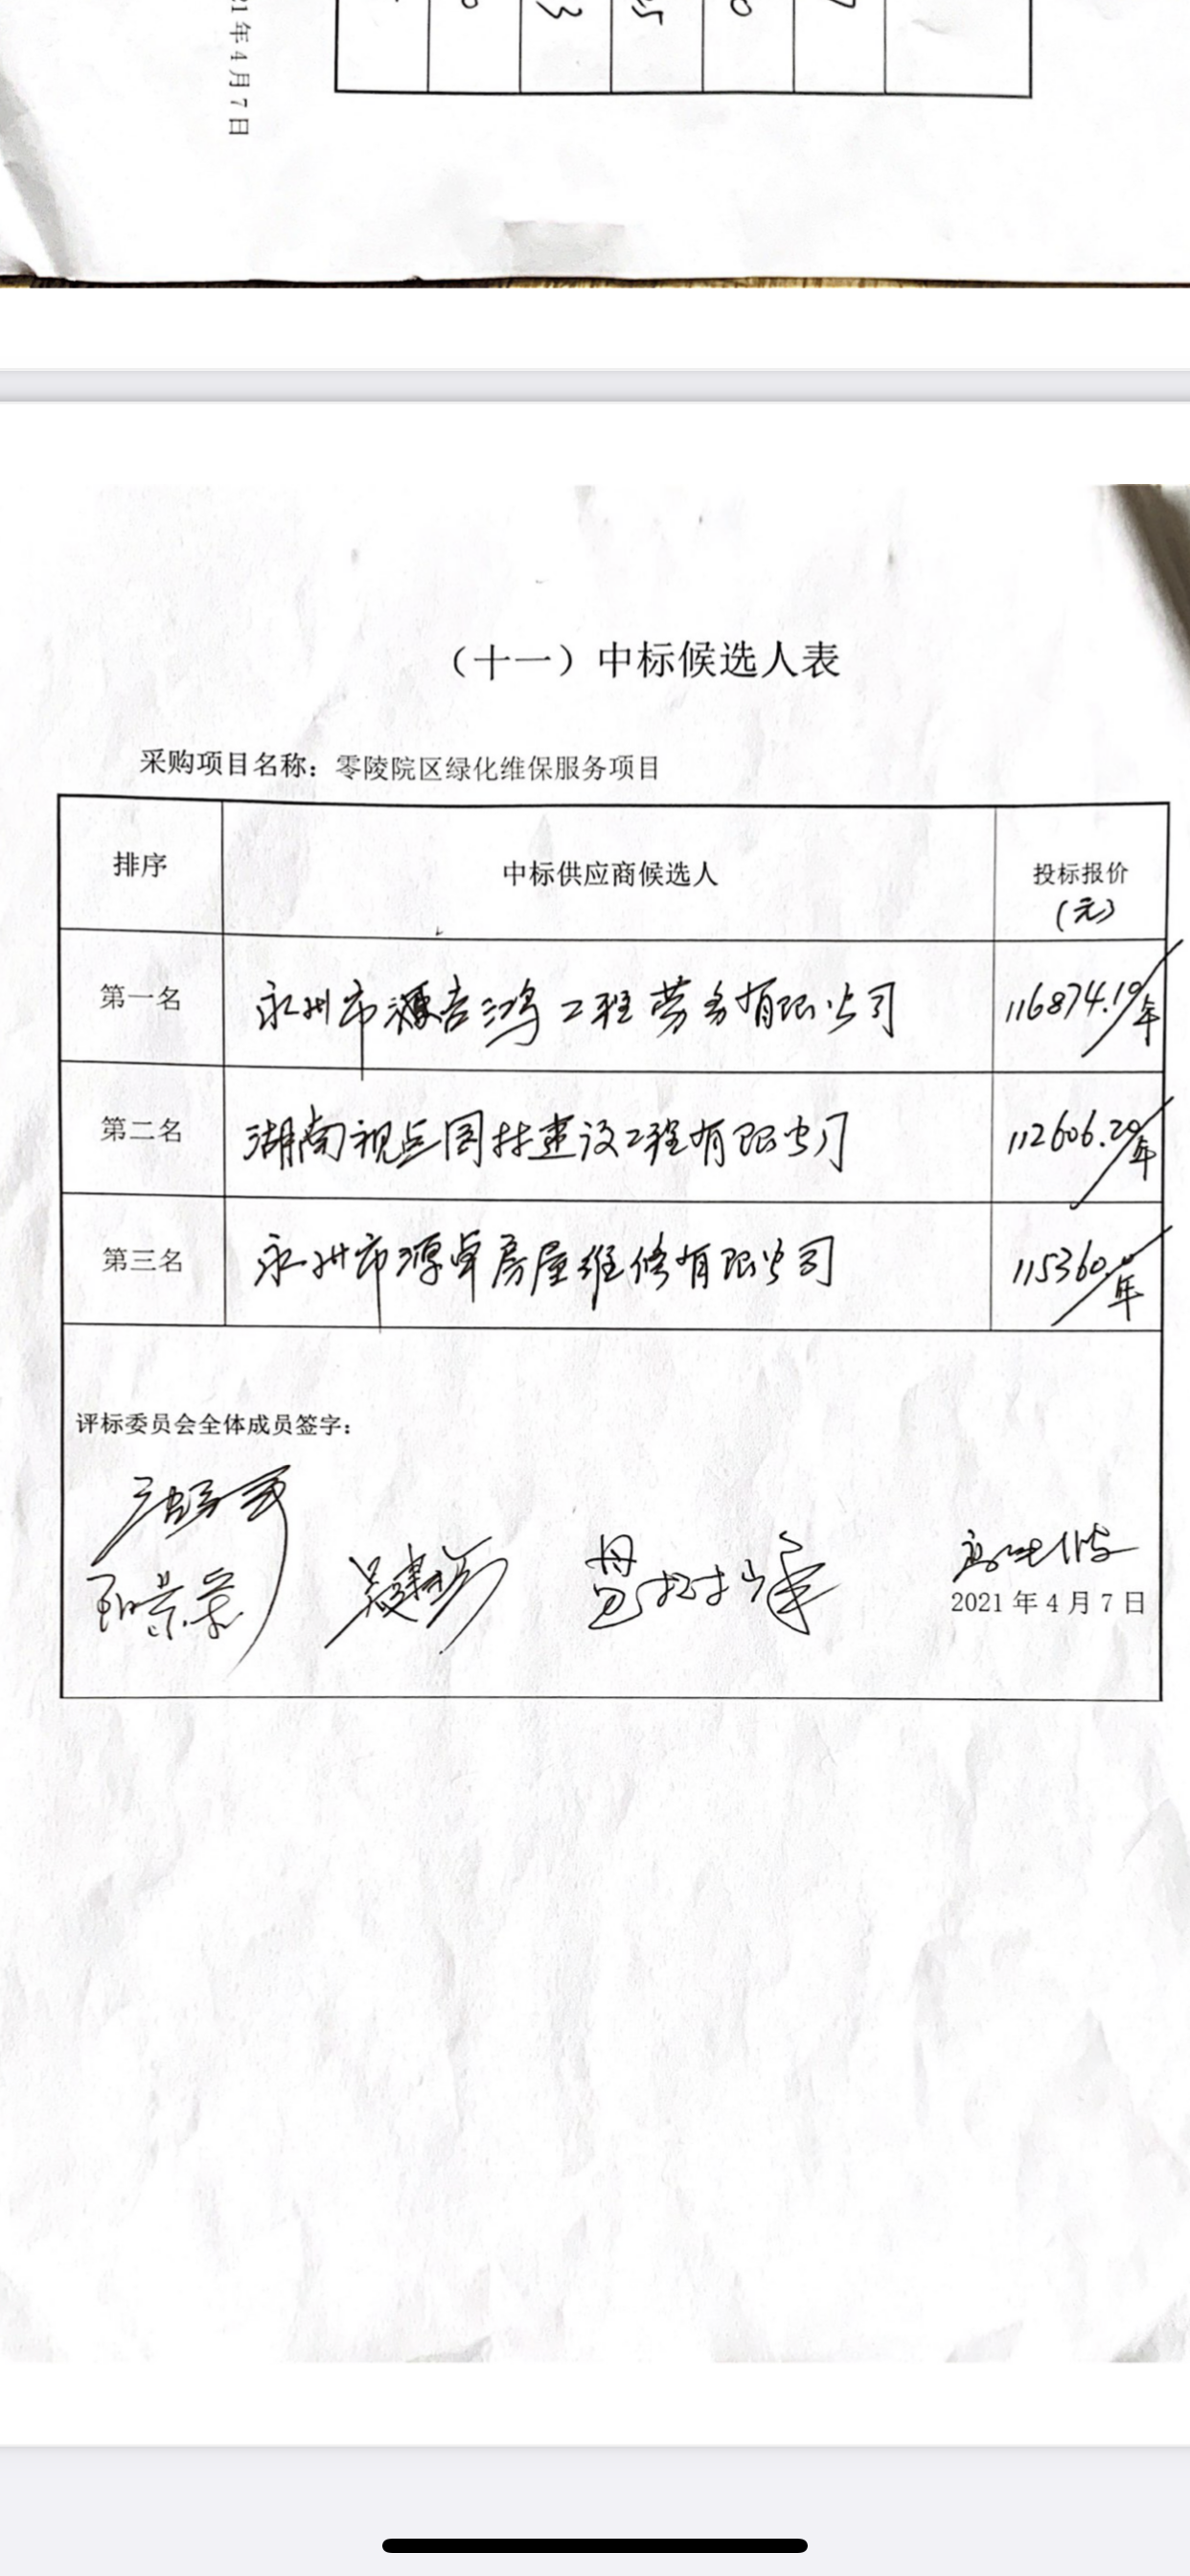 21年4月7日
（十一）中标候选人表
采购项目名称：零陵院区绿化维保服务项目
排序 中标供应商候选人 投标报价（元）
第一名 永州市源吉鸿工程劳务有限公司 116874.19/年
第二名 湖南视点园林建设工程有限公司 112606.20/年
第三名 永州市源卓房屋维修有限公司 115360./年
评标委员会全体成员签字：
2021年4月7日